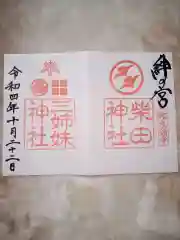 絆の宮
柴田
神社
奉
三姉妹
神社
令和四年十月二十二日